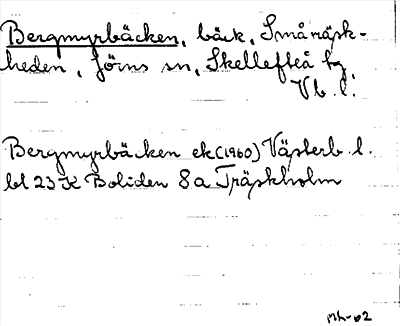 Bergmyrbäcken, bäck, Småträsk-
heden, Jörns sn, Skellefteå kg
Vb. l.
Bergmyrbäcken ek (1960) Västerb. l.
bl 23 K Boliden 8a Träskholm